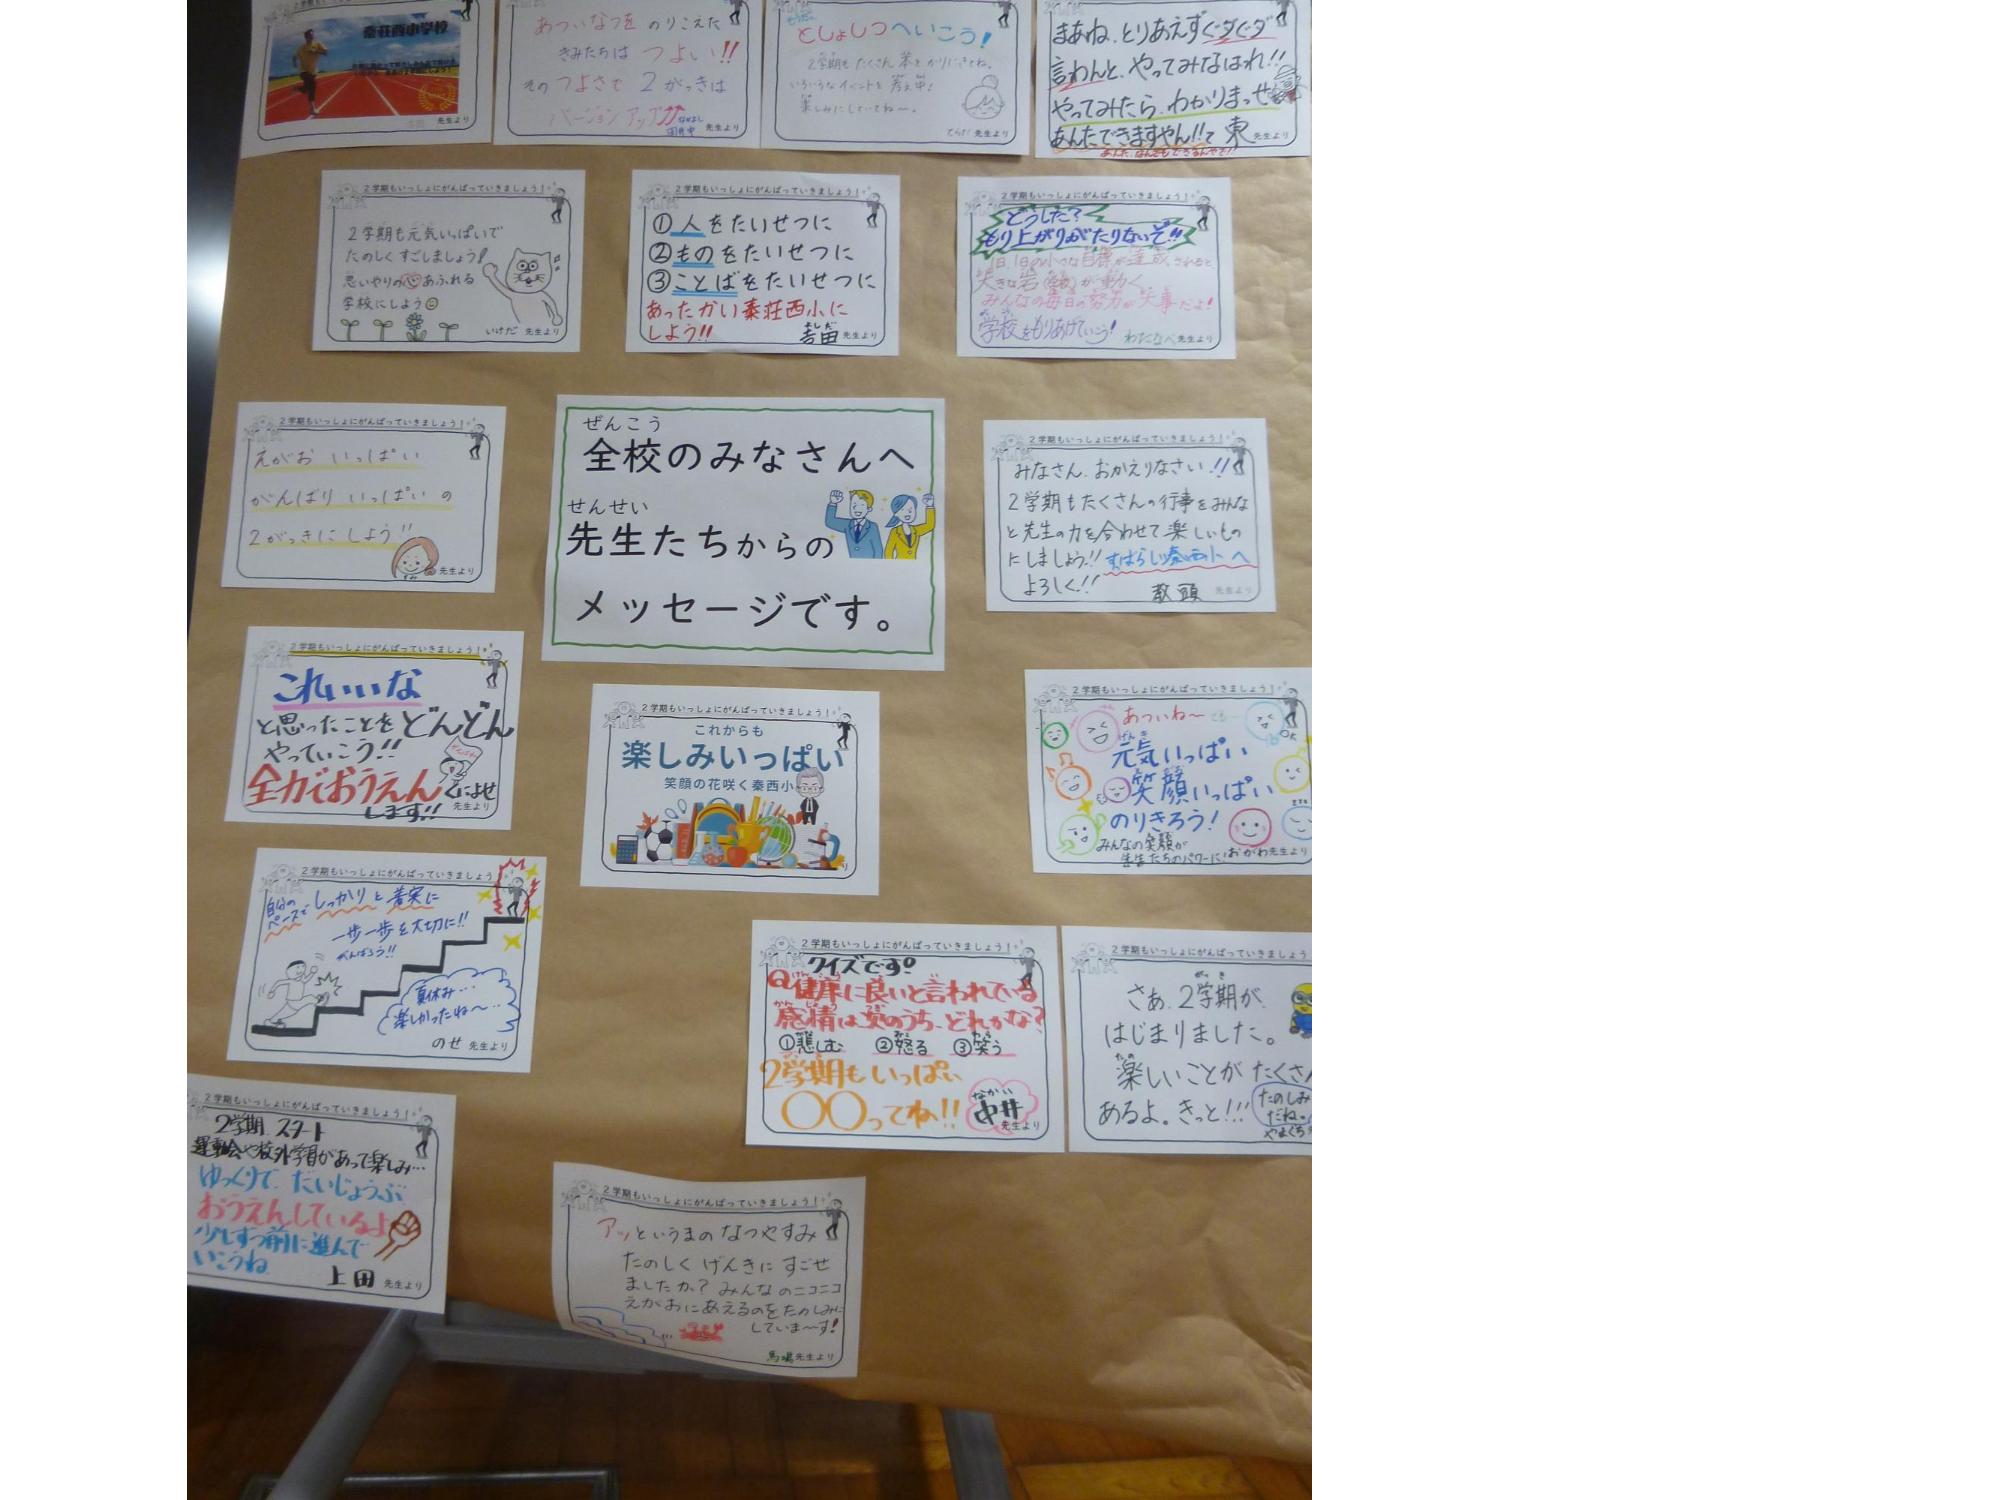 秦荘西小学校
先生より
あついなつを のりこえた
きみたちは つよい!!
その つよさで 2がっきは
バージョンアップだ
先生より
としょしつへいこう!
2学期も たくさん 本を かりにきてね。
いろいろなイベントを 考え中!
楽しみにしていてね〜。
てらだ 先生より
まあね、とりあえずぐダぐダ
言わんと、やってみなはれ!!
やってみたら、わかりまっせ
あんたできますやん!!て 東 先生より
2学期もいっしょにがんばっていきましょう!
2学期も元気いっぱいで
たのしく すごしましょう!
思いやりの心あふれる
学校にしよう
いけだ 先生より
2学期もいっしょにがんばっていきましょう!
①人をたいせつに
②ものをたいせつに
③ことばをたいせつに
あったかい秦荘西小に
しよう!!
よしだ
吉田 先生より
2学期もいっしょにがんばっていきましょう!
どうした?
もり上がりがたりないぞ!!
1日、1日の小さな目標が達成されると
大きな岩 が動く
みんなの毎日の努力が大事だよ!
学校をもりあげていこう!
わたなべ 先生より
2学期もいっしょにがんばっていきましょう!
えがお いっぱい
がんばり いっぱい の
2がっきに しよう!!
先生より
ぜんこう
全校のみなさんへ
せんせい
先生たちからの
メッセージです。
2学期もいっしょにがんばっていきましょう!
みなさん、おかえりなさい!!
2学期もたくさんの行事をみんな
と先生の力を合わせて楽しいもの
にしましょう!! すばらしい秦西小へ
よろしく!!
教頭 先生より
2学期もいっしょにがんばっていきましょう!
これいいな
と思ったことを どんどん
やっていこう!!
全力でおうえん
します!!
くによせ
先生より
2学期もいっしょにがんばっていきましょう!
これからも
楽しみいっぱい
笑顔の花咲く秦西小
り
2学期もいっしょにがんばっていきましょう!
あついね〜 でも…
OK
げんき
元気いっぱい
笑顔いっぱい
のりきろう!
みんなの笑顔が
先生たちのパワーに! おがわ 先生より
2学期もいっしょにがんばっていきましょう
自分の
ペースで しっかりと 着実に
一歩一歩を大切に!!
がんばろう!!
夏休み…
楽しかったね〜…
のせ 先生より
2学期もいっしょにがんばっていきましょう!
クイズです。
Q健康に良いと言われている
感情は次のうち、どれかな?
①悲しむ ②怒る ③笑う
2学期もいっぱい
〇〇ってね!!
なかい
中井
先生より
2学期もいっしょにがんばっていきましょう
がっき
さあ、2学期が
はじまりました。
たの
楽しいことが たくさん
あるよ。きっと!!!
たのしみ
だね。
やまぐち
2学期もいっしょにがんばっていきましょう!
2学期 スタート
運動会や校外学習があって楽しみ…
ゆっくりで、だいじょうぶ
おうえんしているよ
少しずつ前に進んで
いこうね
上田 先生より
2学期もいっしょにがんばっていきましょう!
アッというまの なつやすみ
たのしく げんきに すごせ
ましたか? みんなのニコニコ
えがおにあえるのをたのしみに
していま〜す!
馬場 先生より